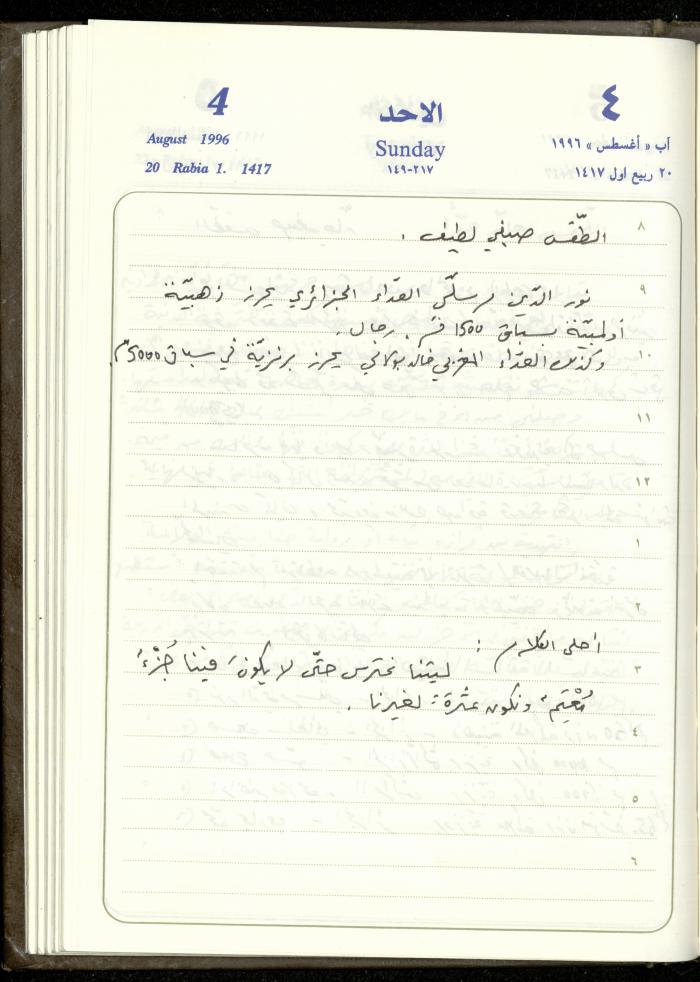 4
August 1996
20 Rabia 1. 1417
الاحد
Sunday
١٤٩-٢١٧
٤
آب « أغسطس » ١٩٩٦
٢٠ ربيع اول ١٤١٧
٨ الطّقس صيفي لطيف .
٩ نور الدّين مرسلّي العدّاء الجزائري يحرز ذهبيّة
أولمبيّة بسباق 1500 م. رجال .
١٠ وكذلك العدّاء المغربي خالد بولامي يحرز برنزيّة في سباق 5000 م.
١١
١٢
١
٢
أحلى الكلام :
٣ ليتنا نحترس حتّى لا يكونَ فينا جُزْءٌ
مُعْتِمٌ ونكون عثْرَةً لغيرنا .
٤
٥
٦